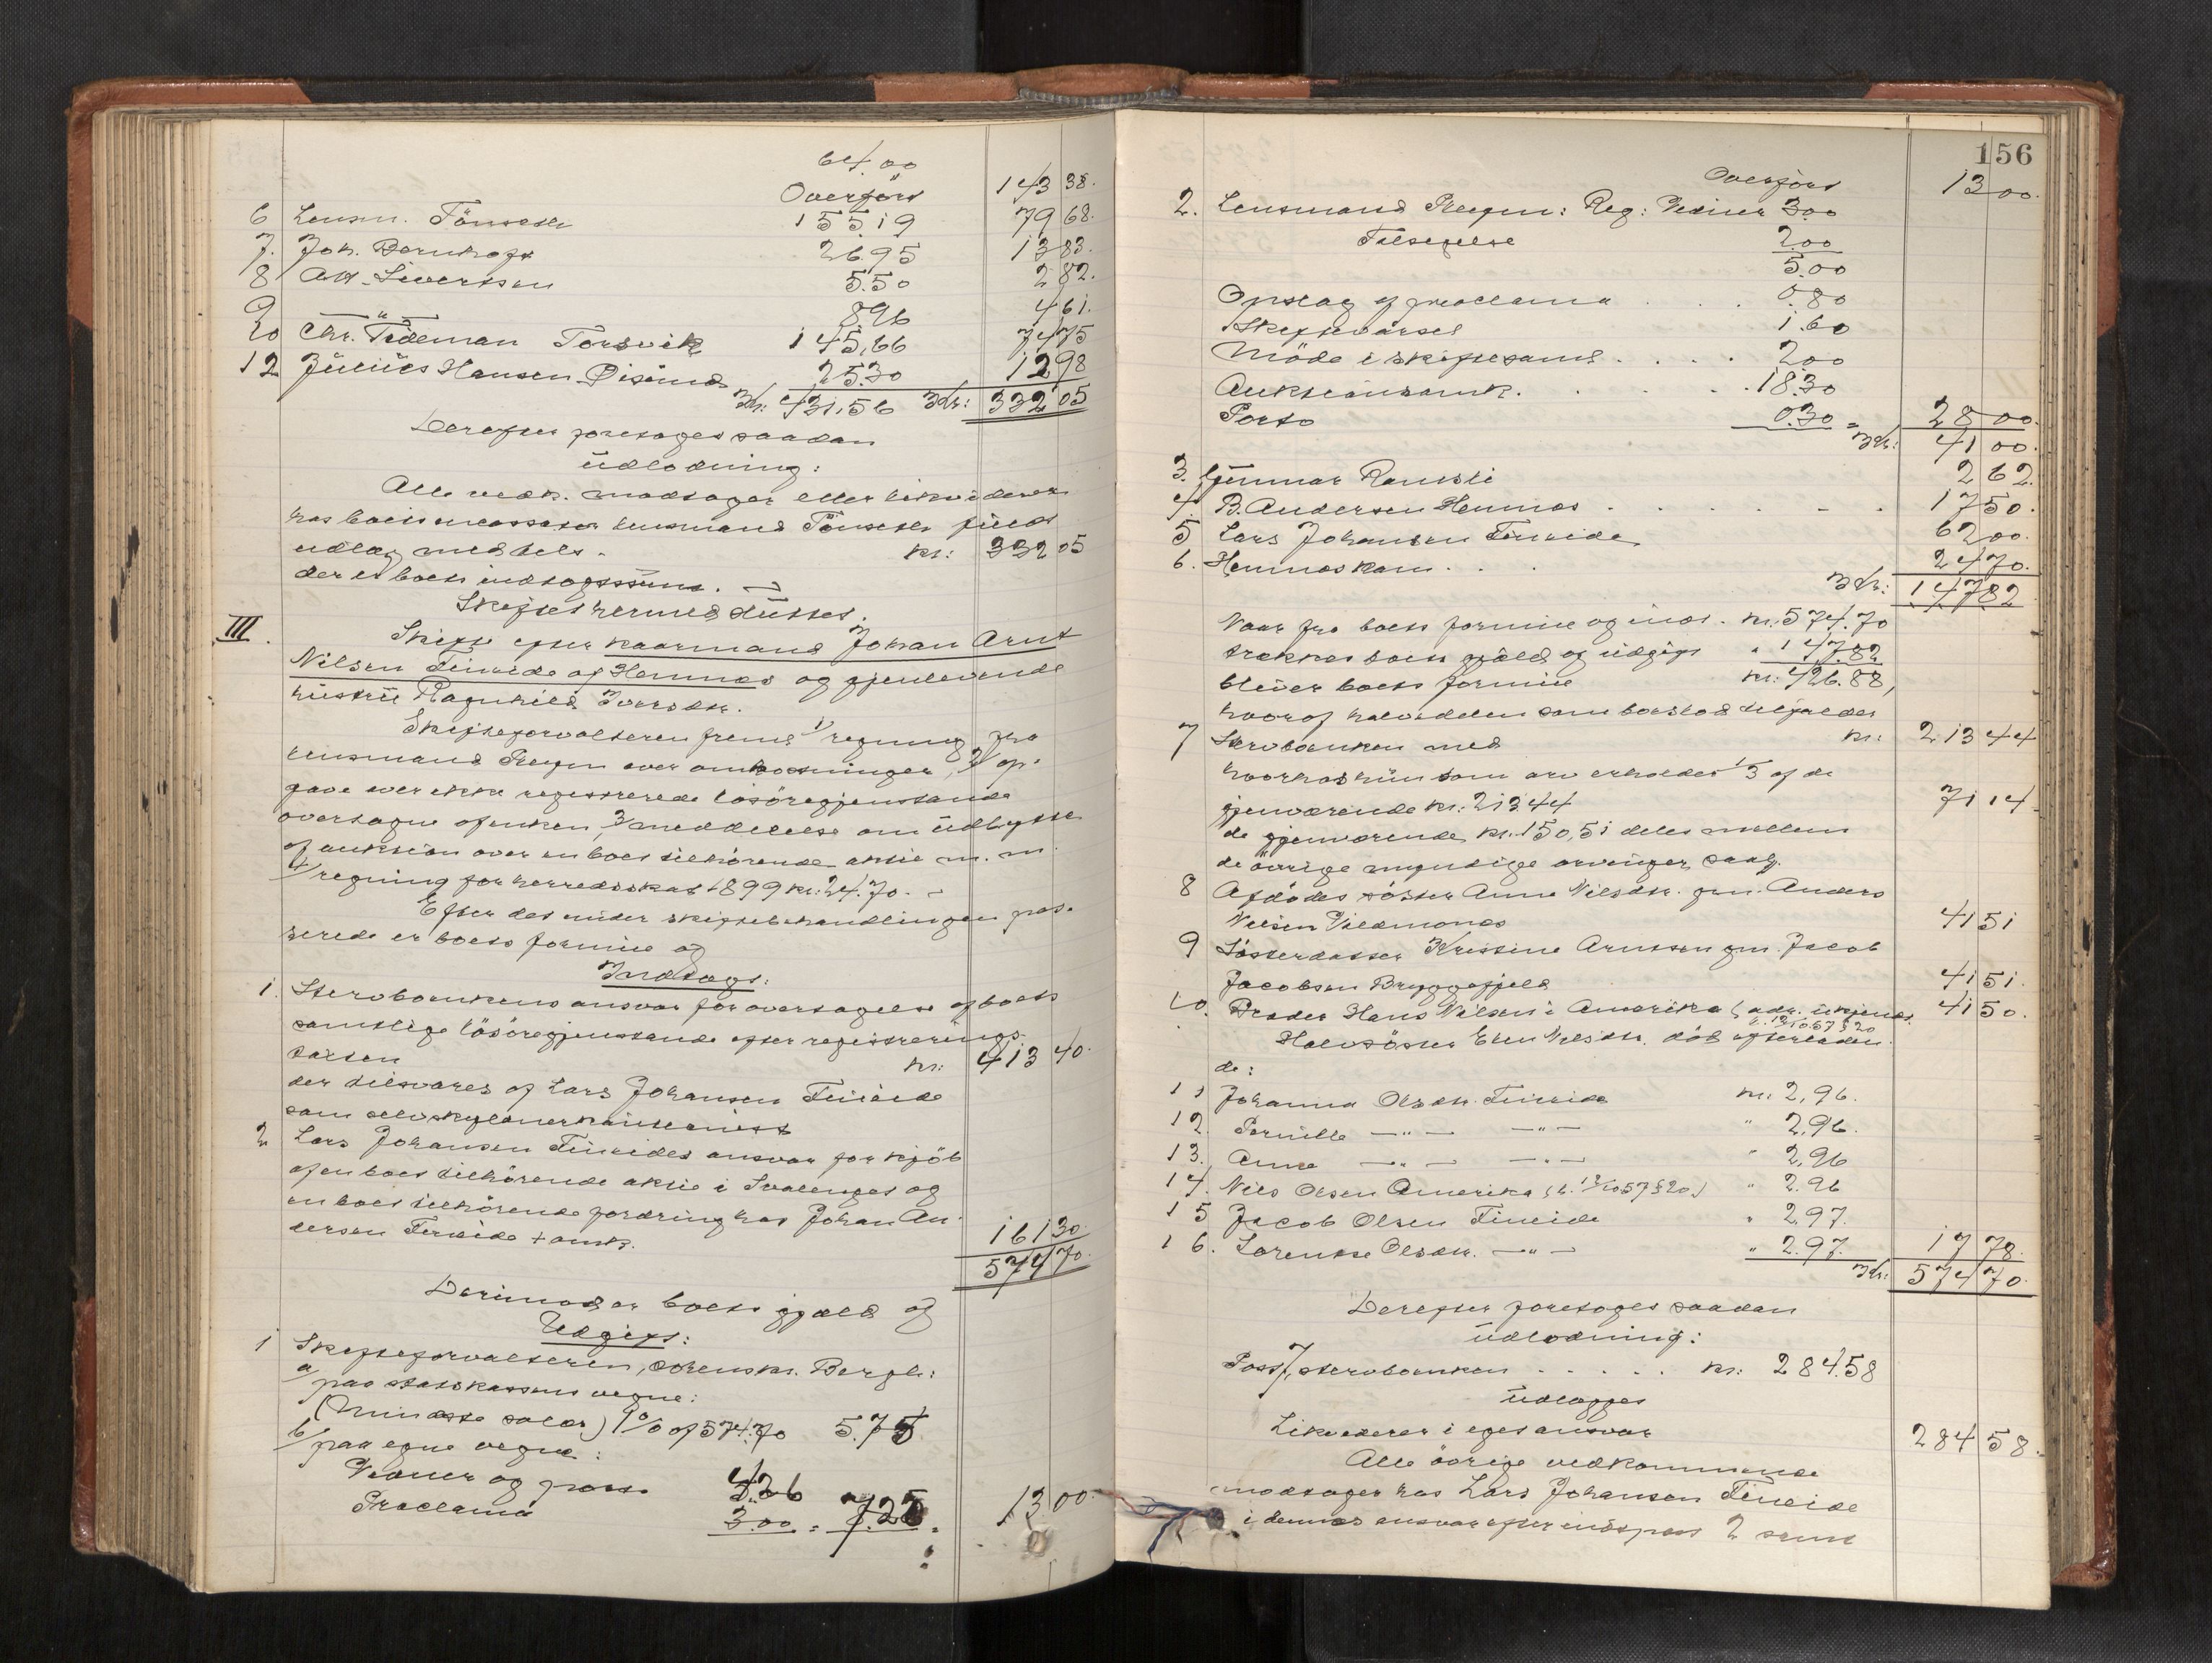 64.00
Overført 143 38.
6 Lensm. Tönseth 155.19 79 68.
7. Joh. Bernhoft 26.95 13 83.
8 Alb. Sivertsen 5.50 2 82.
9 — " — 8 96 4 61.
10 Chr. Tideman Torsvik 145,66 74 75
12 Júliús Hansen 25.30 12 98
Kr: 431,56 Kr: 332 05
Derefter foretoges saadan
údlodning:
Alle vedk. modtager eller likviderer
hos boets incassator lensmand Tönseth fúldt
údlæg med tils. kr: 332 05
der er boets indtægtssúm.
Skiftet hermed slúttet.
III.
Skifte efter kaarmand Johan Arnt
Nilsen Fineide af Hemnes og gjenlevende
hústrú Ragnhild Iversdtr.
Skifteforvalteren freml. 1/ regning fra
lensmand over omkostninger, 2/ op-
gave over ikke registrerede lösöregjenstande
overtagne af enken, 3/ meddelelse om údbyttet
af auktion over en boet tilhörende aktie m. m.
4/ regning for herredsskat 1899 kr: 24.70.
Efter det únder skiftebehandlingen pas-
serede er boets formúe og
Indtægt:
1. Stervboenkens ansvar for overtagelse af boets
samtlige lösöregjenstande efter registrerings-
taxten kr: 413 40.
der tilsvares af Lars Johansen Fineide
som selvskyldnerkaútionist
2 Lars Johansen Fineides ansvar for kjöb
af en boet tilhörende aktie i Svalenget og
en boet tilhörende fordring hos Johan An-
dersen Fineide + omk. 161 30.
574 70.
Derimod er boets gjæld og
Udgift:
1 Skifteforvalteren, sorenskr. Bergh:
a/ paa statskassens vegne:
(Mindste salær) 1% af 574.70 5.75
b/ paa egne vegne:
Vedner og porto 4.26
Proclama 3.00 = 7.25 = 13 00.
156
Overført 13 00.
2. Lensmand : Reg: Vedner 3.00
Tilsigelse 2.00
5.00
Opslag af proclama . . . 0.80
Skiftevarsel 1.60
Möde i skiftesaml. . . . . 2.00
Auktionsomk. . . . . 18.30
Porto 0.30 = 28 00.
Kr: 41 00.
3. Gúnnar Ranikli 2 62.
4. B. Andersen Hemnes . . . . 17 50.
5 Lars Johansen Fineide 62 00.
6. Hemnes kom. . . 24 70.
Kr: 147 82
Naar fra boets formúe og indt. kr. 574.70
trækkes boets gjæld og údgift " 147.82
bliver boets formúe kr: 426.88,
hvoraf halvdelen som boeslod tilfalder
7 Stervboenken med kr: 213 44
hvorhos hún som arv erholder 1/3 af de
gjenværende kr: 213.44 71 14.
de gjenværende kr. 150,51 deles mellem
de övrige myndige arvinger saal.
8 Afdödes söster Anne Nilsdtr. gm. Anders
Nilsen Vildmones 41 51
9 Sösterdatter Kristine Arntsen gm. Jacob
Jacobsen Bryggefjeld 41 51.
10. Broder Hans Nilsen i Amerika (adr. úkjendt) 41 50.
l. 12/10 57 § 20
Halvsöster Ellen Nilsdtr. död efterladen-
de:
11 Johanna Olsdtr. Fineide kr: 2,96.
12. Pernille — " — — " — " 2,96.
13. Anna — " — — " — " 2,96
14. Nils Olsen Amerika (l. 12/10 57 § 20.) " 2.96
15 Jacob Olsen Fineide " 2.97.
16. Lorentse Olsdtr. — " — " 2.97. 17 78.
Kr: 574 70.
Derefter foretoges saadan
údlodning:
Post 7, stervboenken . . . . . kr: 284.58
údlægges
Likviderer i eget ansvar 284 58.
Alle övrige vedkommende
modtager hos Lars Johansen Fineide
i dennes ansvar efter indt. post 2 samt